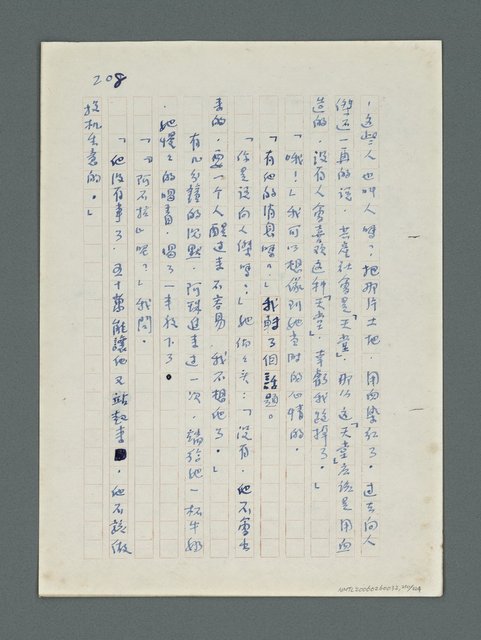 208
，這些人也叫人嗎？把那片土地，用血染紅了。過去向人
傑還一再的說，共產社會是「天堂」，那么這「天堂」應該是用血
造的，沒有人會喜歡這種「天堂」，幸虧我跑掉了。」
「哦！」我可以想像到她當時的心情的。
「有他的消息嗎？」我轉了個話題。
「你是說向人傑嗎？」她向了头：「沒有，他不會出
來的，要一個人醒過來不容易，我不想他了。」
有几分鐘的沉默，阿珠進來過一次，端給她一杯牛奶
，她慢慢的喝着，喝了一半放下了。
「阿石搭」呢？」我問。
「他沒有事了，五十萬能讓他又站起來，他不該做
投机生意的。」
NMTL20060260032